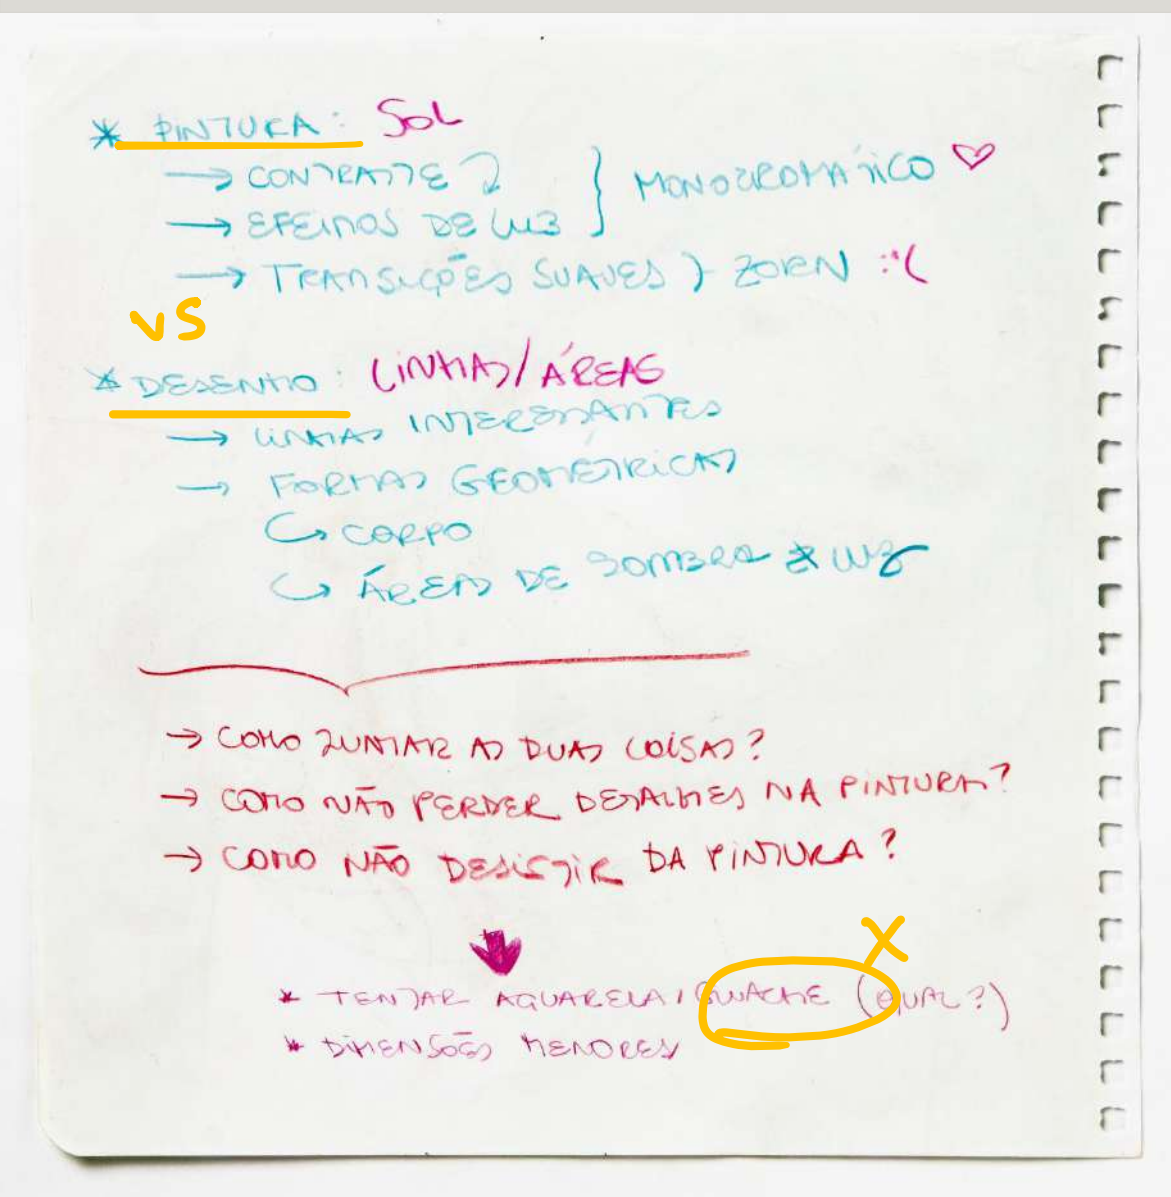 * PINTURA: SOL
→ CONTRASTE
→ EFEITOS DE LUZ } MONOCROMÁTICO ♡
→ TRANSIÇÕES SUAVES } ZORN :'(
VS
* DESENHO: LINHAS/ÁREAS
→ LINHAS INTERESSANTES
→ FORMAS GEOMETRICAS
↳ CORPO
↳ ÁREAS DE SOMBRA & LUZ
→ COMO JUNTAR AS DUAS COISAS?
→ COMO NÃO PERDER DETALHES NA PINTURA?
→ COMO NÃO DESISTIR DA PINTURA?
X
* TENTAR AQUARELA/GUACHE (QUAL?)
* DIMENSÕES MENORES